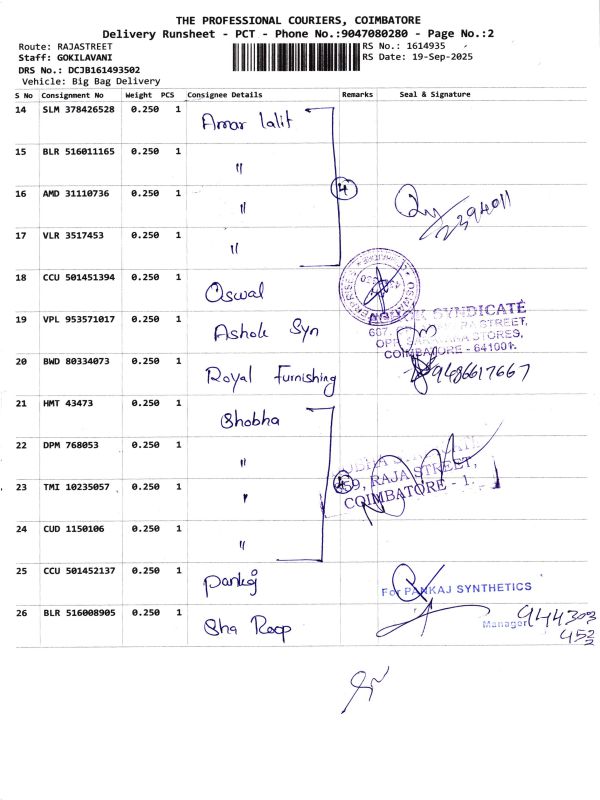 THE PROFESSIONAL COURIERS, COIMBATORE
Delivery Runsheet - PCT - Phone No.:9047080280 - Page No.:2
Route: RAJASTREET RS No.: 1614935
Staff: GOKILAVANI RS Date: 19-Sep-2025
DRS No.: DCJB161493502
Vehicle: Big Bag Delivery
S No Consignment No Weight PCS Consignee Details Remarks Seal & Signature
14 SLM 378426528 0.250 1 Amar lalit
15 BLR 516011165 0.250 1 "
16 AMD 31110736 0.250 1 " 4
17 VLR 3517453 0.250 1 "
18 CCU 501451394 0.250 1 Oswal
19 VPL 953571017 0.250 1 Ashok Syn
SYNDICATE
STREET,
STORES,
COIMBATORE - 641001.
20 BWD 80334073 0.250 1 Royal Furnishing 9486617667
21 HMT 43473 0.250 1 Shobha
22 DPM 768053 0.250 1 "
23 TMI 10235057 0.250 1 " 4
59, RAJA STREET,
COIMBATORE - 1.
24 CUD 1150106 0.250 1 "
25 CCU 501452137 0.250 1 Pankaj
For PANKAJ SYNTHETICS
Manager
26 BLR 516008905 0.250 1 Sha Roop 944303
452